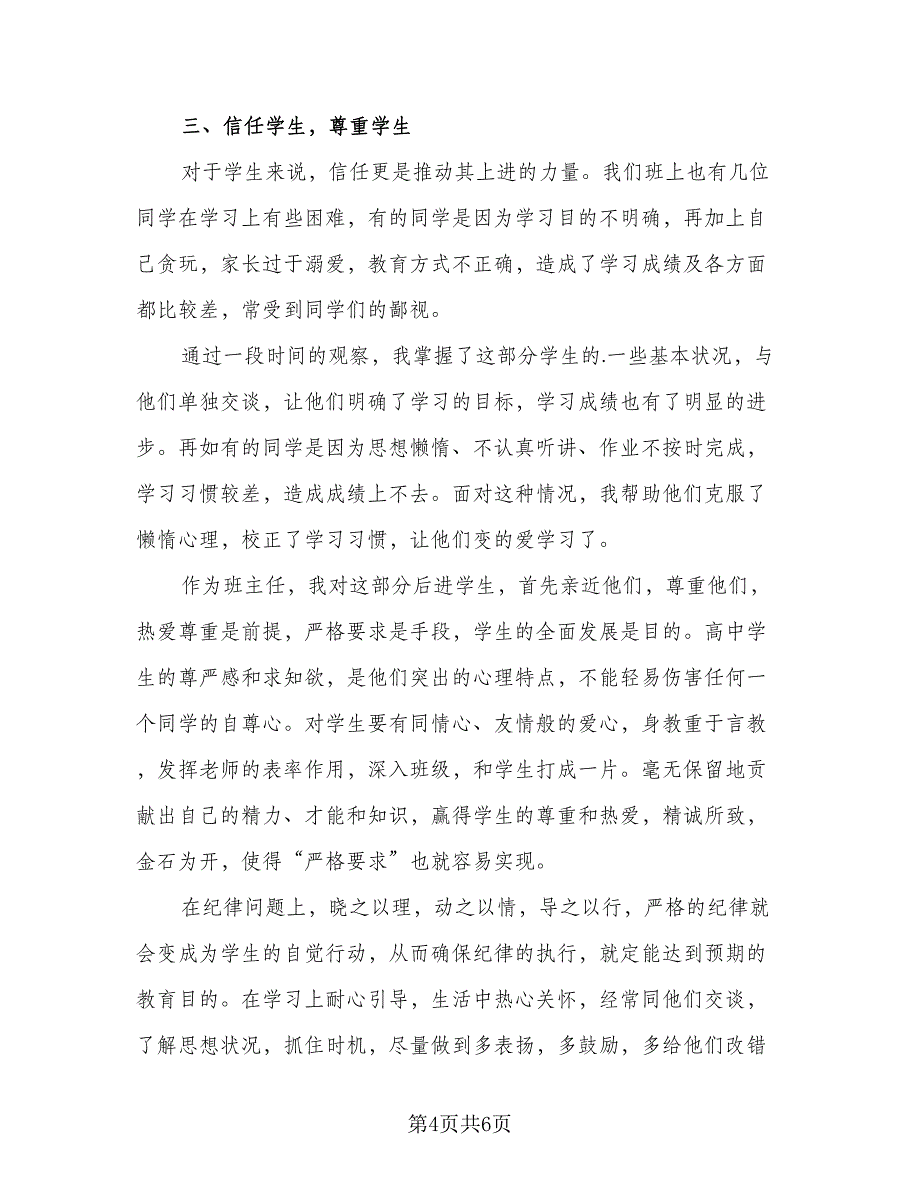 三、信任学生，尊重学生
对于学生来说，信任更是推动其上进的力量。我们班上也有几位
同学在学习上有些困难，有的同学是因为学习目的不明确，再加上自
己贪玩，家长过于溺爱，教育方式不正确，造成了学习成绩及各方面
都比较差，常受到同学们的鄙视。
通过一段时间的观察，我掌握了这部分学生的.一些基本状况，与
他们单独交谈，让他们明确了学习的目标，学习成绩也有了明显的进
步。再如有的同学是因为思想懒惰、不认真听讲、作业不按时完成，
学习习惯较差，造成成绩上不去。面对这种情况，我帮助他们克服了
懒惰心理，校正了学习习惯，让他们变的爱学习了。
作为班主任，我对这部分后进学生，首先亲近他们，尊重他们，
热爱尊重是前提，严格要求是手段，学生的全面发展是目的。高中学
生的尊严感和求知欲，是他们突出的心理特点，不能轻易伤害任何一
个同学的自尊心。对学生要有同情心、友情般的爱心，身教重于言教
，发挥老师的表率作用，深入班级，和学生打成一片。毫无保留地贡
献出自己的精力、才能和知识，赢得学生的尊重和热爱，精诚所致，
金石为开，使得“严格要求”也就容易实现。
在纪律问题上，晓之以理，动之以情，导之以行，严格的纪律就
会变成为学生的自觉行动，从而确保纪律的执行，就定能达到预期的
教育目的。在学习上耐心引导，生活中热心关怀，经常同他们交谈，
了解思想状况，抓住时机，尽量做到多表扬，多鼓励，多给他们改错
第4页共6页